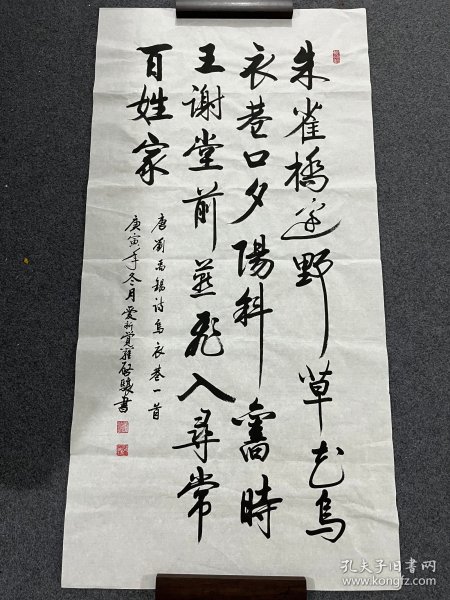 朱雀橋邊野草花烏
衣巷口夕陽斜舊時
王謝堂前燕飛入尋常
百姓家
唐劉禹錫詩烏衣巷一首
庚寅年冬月愛新覺羅啟驤書
孔夫子旧书网
www.kongfz.com